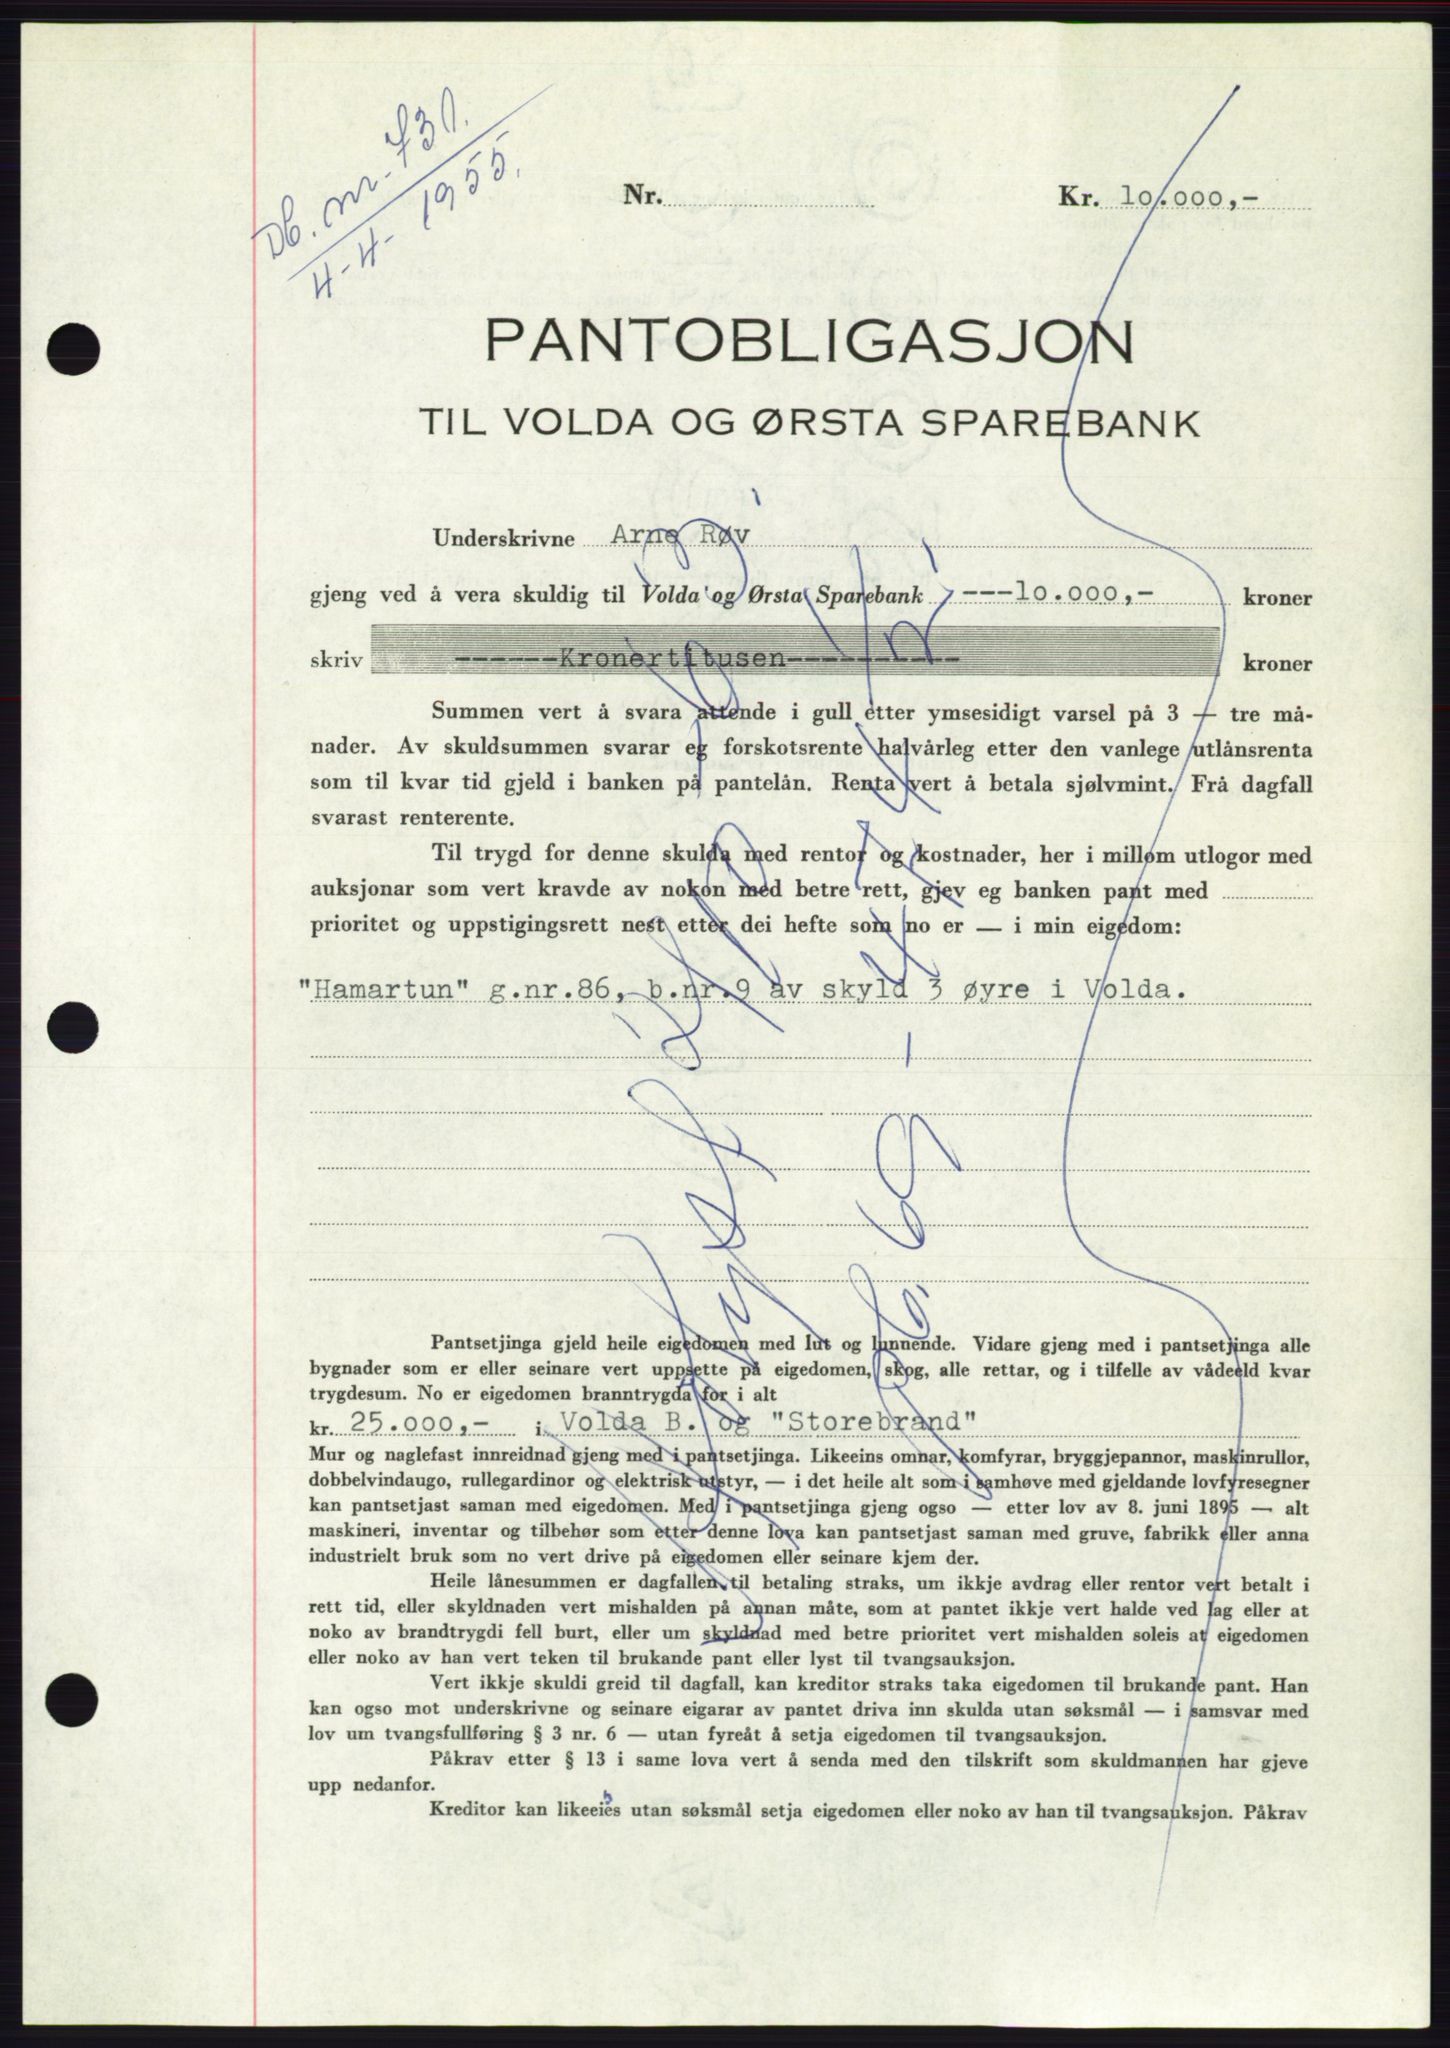 Db. nr. 730.
4-4-1955.
Nr. Kr. 10.000,-
PANTOBLIGASJON
TIL VOLDA OG ØRSTA SPAREBANK
Underskrivne Arne Røv
gjeng ved å vera skuldig til Volda og Ørsta Sparebank ---10.000,- kroner
skriv ------Kronertitusen---------- kroner
Summen vert å svara attende i gull etter ymsesidigt varsel på 3 — tre må-
nader. Av skuldsummen svarar eg forskotsrente halvårleg etter den vanlege utlånsrenta
som til kvar tid gjeld i banken på pantelån. Renta vert å betala sjølvmint. Frå dagfall
svarast renterente.
Til trygd for denne skulda med rentor og kostnader, her i millom utlogor med
auksjonar som vert kravde av nokon med betre rett, gjev eg banken pant med
prioritet og uppstigingsrett nest etter dei hefte som no er — i min eigedom:
"Hamartun" g.nr.86, b.nr.9 av skyld 3 øyre i Volda.
Pantsetjinga gjeld heile eigedomen med lut og lunnende. Vidare gjeng med i pantsetjinga alle
bygnader som er eller seinare vert uppsette på eigedomen, skog, alle rettar, og i tilfelle av vådeeld kvar
trygdesum. No er eigedomen branntrygda for i alt
kr. 25.000,- i Volda B. og "Storebrand"
Mur og naglefast innreidnad gjeng med i pantsetjinga. Likeeins omnar, komfyrar, bryggjepannor, maskinrullor,
dobbelvindaugo, rullegardinor og elektrisk utstyr, — i det heile alt som i samhøve med gjeldande lovfyresegner
kan pantsetjast saman med eigedomen. Med i pantsetjinga gjeng ogso — etter lov av 8. juni 1895 — alt
maskineri, inventar og tilbehør som etter denne lova kan pantsetjast saman med gruve, fabrikk eller anna
industrielt bruk som no vert drive på eigedomen eller seinare kjem der.
Heile lånesummen er dagfallen til betaling straks, um ikkje avdrag eller rentor vert betalt i
rett tid, eller skyldnaden vert mishalden på annan måte, som at pantet ikkje vert halde ved lag eller at
noko av brandtrygdi fell burt, eller um skyldnad med betre prioritet vert mishalden soleis at eigedomen
eller noko av han vert teken til brukande pant eller lyst til tvangsauksjon.
Vert ikkje skuldi greid til dagfall, kan kreditor straks taka eigedomen til brukande pant. Han
kan ogso mot underskrivne og seinare eigarar av pantet driva inn skulda utan søksmål — i samsvar med
lov um tvangsfullføring § 3 nr. 6 — utan fyreåt å setja eigedomen til tvangsauksjon.
Påkrav etter § 13 i same lova vert å senda med den tilskrift som skuldmannen har gjeve
upp nedanfor.
Kreditor kan likeeins utan søksmål setja eigedomen eller noko av han til tvangsauksjon. Påkrav